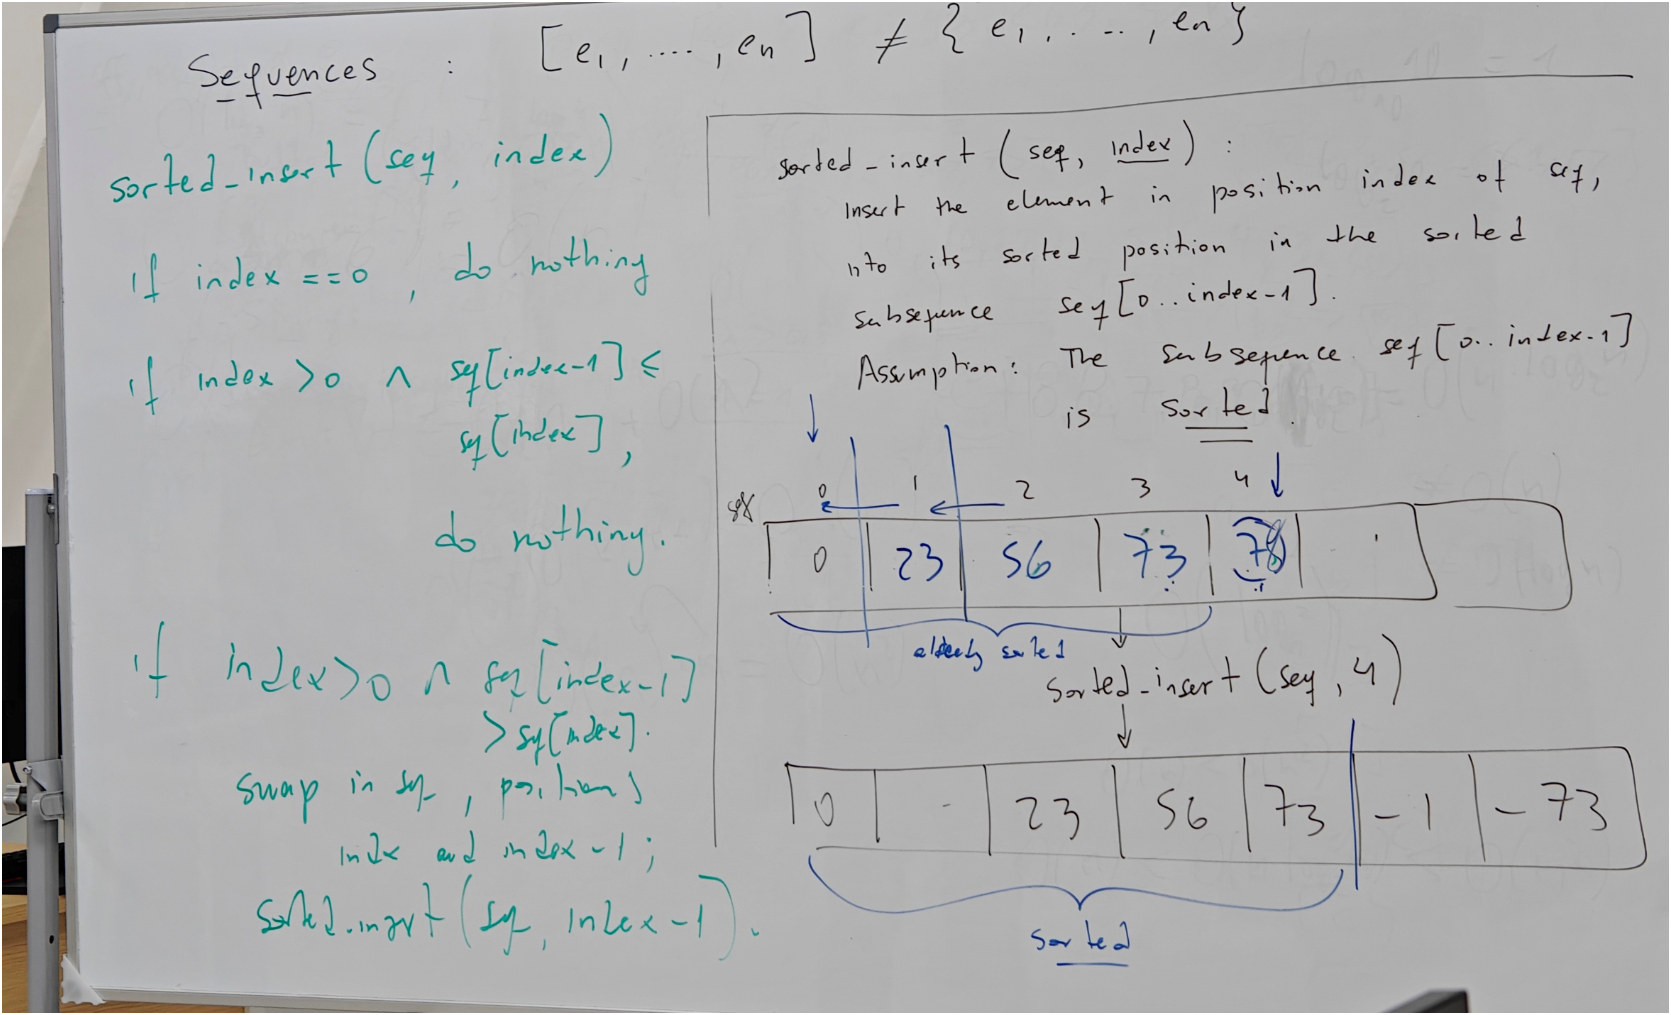 Sequences : [e1, ...., en] ≠ { e1, . ..., en }
sorted_insert (seq, index)
if index ==0, do nothing
if index >0 ∧ seq[index-1] ≤
seq[index],
do nothing.
if index>0 ∧ seq[index-1]
> seq[index].
swap in seq, positions
index and index-1;
sorted_insert(seq, index-1).
sorted_insert (seq, index) :
Insert the element in position index of seq,
into its sorted position in the sorted
subsequence seq[0..index-1].
Assumption: The subsequence seq[0..index-1]
is sorted.
0 1 2 3 4
seq
0 23 56 73
already sorted
sorted_insert(seq, 4)
0 - 23 56 73 -1 -73
sorted